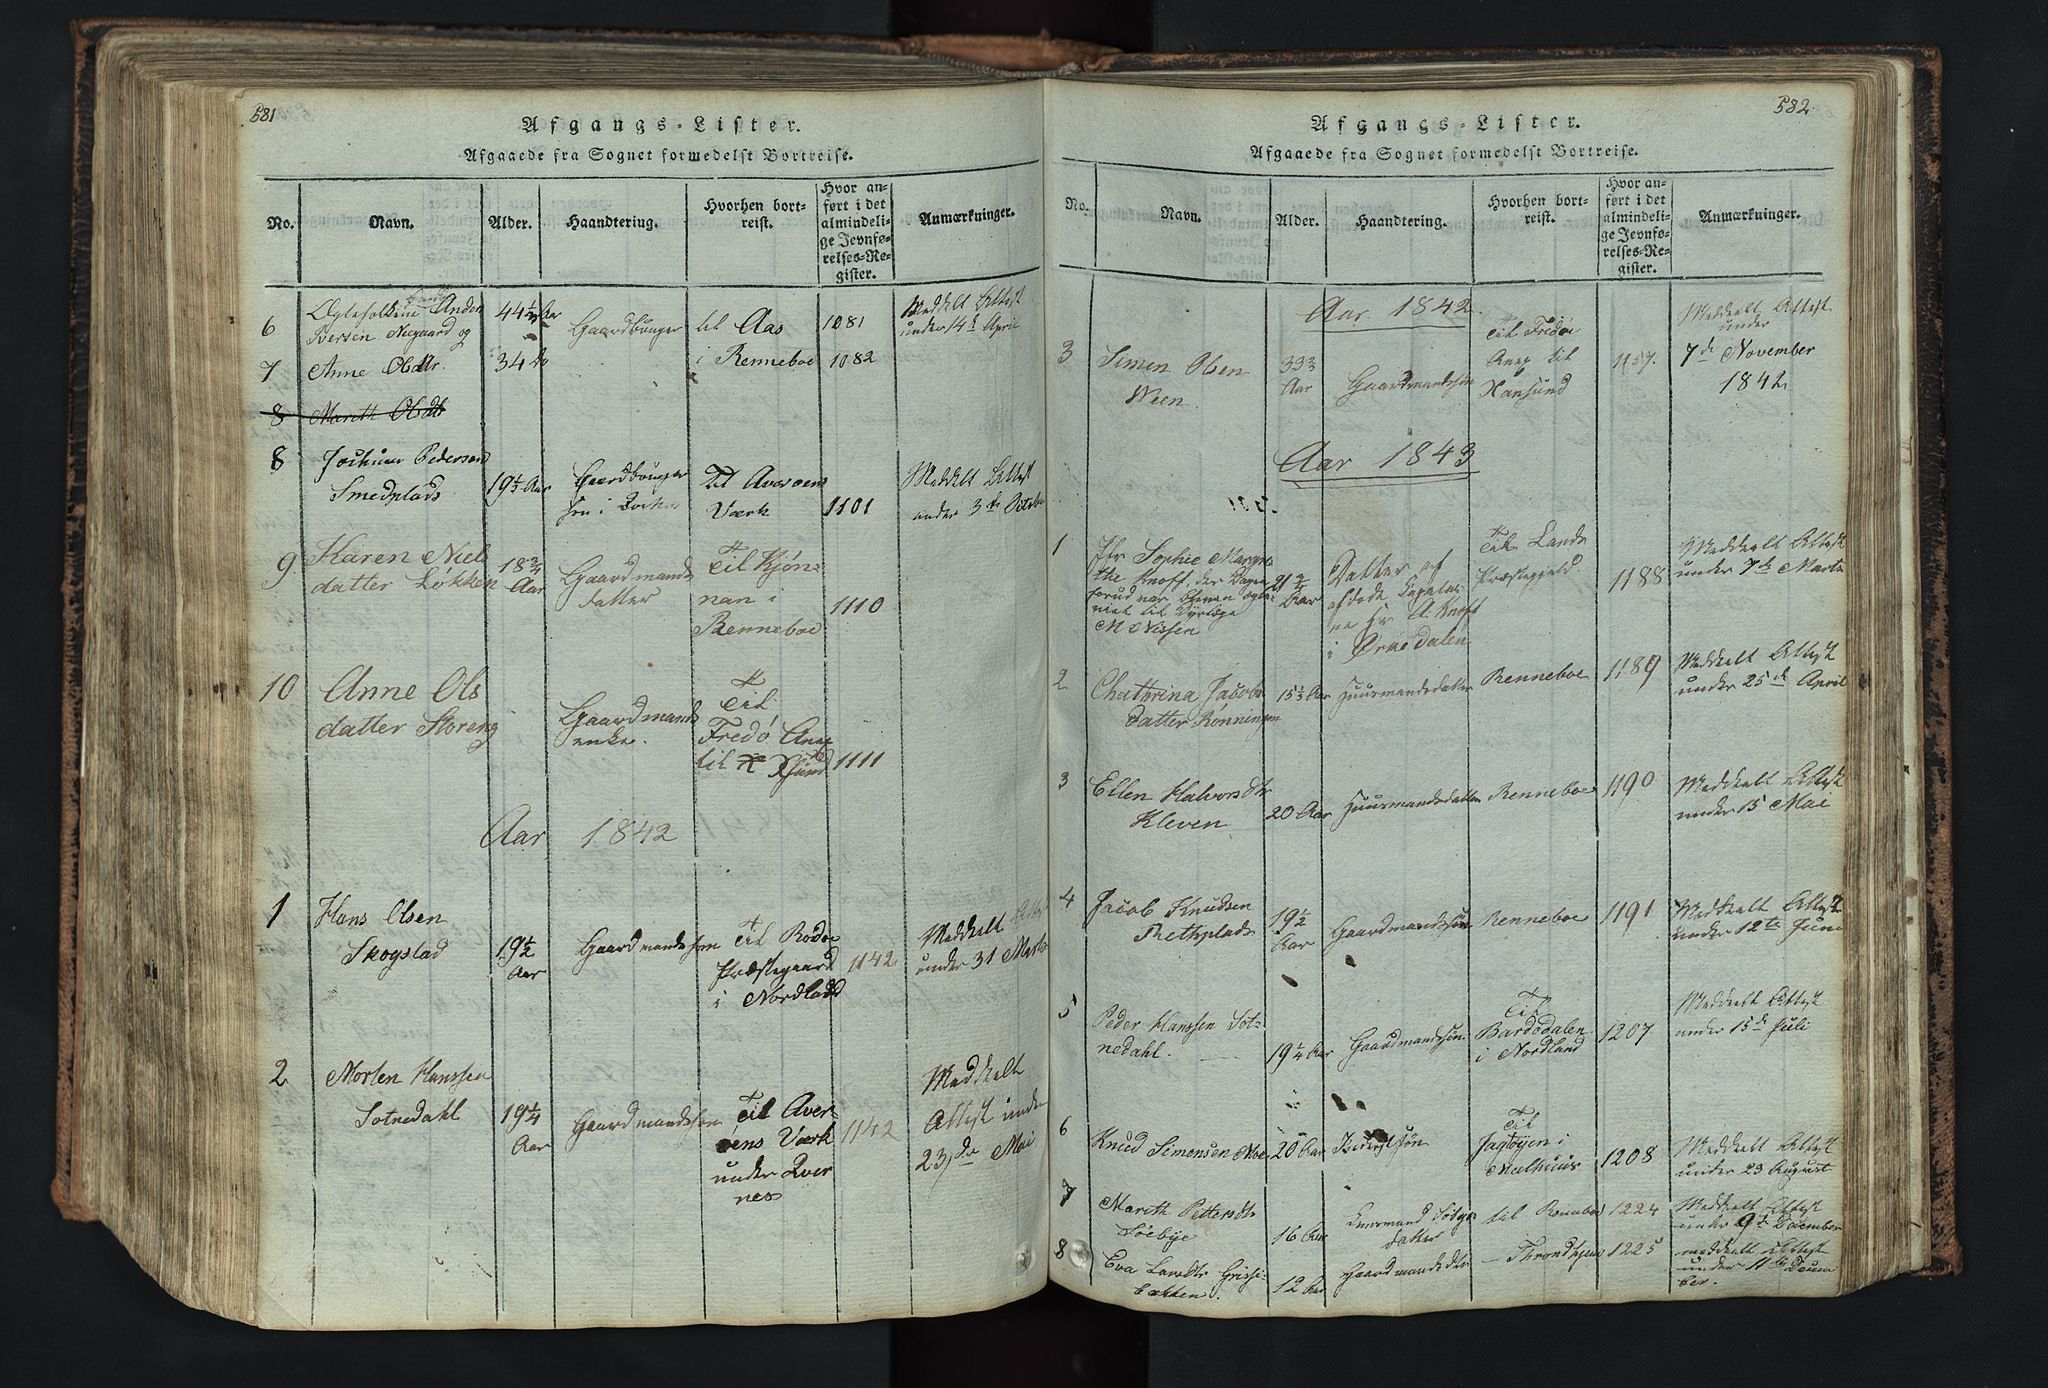 581
Afgangs-Lister.
Afgaaede fra Sognet formedelst Bortreise.
No.
Navn.
Alder.
Haandtering.
Hvorhen bort-
reist.
Hvor an-
ført i det
almindeli-
ge Jevnfø-
relses-Re-
gister.
Anmærkninger.
6
Ægtefolkene Anders
Iversen og
44½ Aar
Gaardbruger
til Aas
1081
Meddelt Attest
under 14de April
7
Anne Olsdtr.
34 do
i Renneboe
1082
8
Marith Olsdtr
8
Jochum Pedersen
Smedplads
19½ Aar
Gaardbruger
Søn i
Til Averøens
Værk
1101
Meddelt Attest
under 3de Octob
9
Karen Niels
datter Løkken
18¾
Aar
Gaardmands
datter
Til Kjøn-
nan i
Renneboe
1110
10
Anne Ols
datter Storeng
Gaardmands
enke.
Til
Fredø Anex
til
1111
Aar 1842
1
Hans Olsen
Skogstad
19½
Aar
Gaardmandssøn
Til Rodøe
Præstegaard
i Nordland
1142
Meddelt Attest
under 31 Marts
2
Morten Hanssen
Sotnedahl
19¼
Aar
Gaardmandssøn
Til Aver-
øens Værk
under Qver
nes
1142
Meddelt
Attest under
23de Mai
582
Afgangs-Lister.
Afgaaede fra Sognet formedelst Bortreise.
No.
Navn.
Alder.
Haandtering.
Hvorhen bort-
reist.
Hvor an-
ført i det
almindeli-
ge Jevnfø-
relses-Re-
gister.
Anmærkninger.
Aar 1842
3
Simen Olsen
Ween
Aar
Gaardmandssøn
Til Fredøe
Anex til
1157.
Meddelt Attest
under
7de November
1842
Aar 1843
1
Jfr Sophie Margre
the Knoff, der Dagen
forud var bleven
viet til Dyrlæge
M Nissen
21
Aar
Datter af
afdøde Capitai
ne Hr A. Knoff
i Ørkedalen
Til Lands
Præstegjeld
1188
Meddeelt Attest
under 7de Marts
2
Chathrina Jacobs
datter Rønningen
15½ Aar
Huusmandsdatter
Renneboe
1189
Meddeelt Attest
under 25de April
3
Ellen Halvorsdtr
Kleven
20 Aar
Huusmandsdatter
Renneboe
1190
Meddeelt Attest
under 15 Mai
4
Jacob Knudsen
19½
Aar
Gaardmandssøn
Renneboe
1191
Meddeelt Attest
under 12te Juni
5
Peder Hanssen Sot-
nedahl.
19¼ Aar
Gaardmandssøn
Til
Bardodalen
i Nordland
1207
Meddeelt Attest
under 15de Juli
6
Knud Simonsen Moe
20 Aar
Til
i
1208
Meddeelt Attest
under 23 August
7
Marith Pettersdtr
16 Aar
datter
til Renneboe
1224
Meddeelt Attest
under 9de December
8
Eva Larsdtr
bakken.
12 Aar
Gaardmandsdtr
– Throndhjem
1225
meddeelt Attest
under 11te Decem
ber.